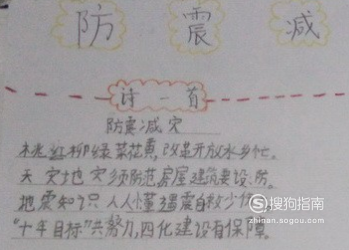 防 震 减
诗一首
防震减灾
桃红柳绿菜花黄，改革开放水乡忙。
天灾地灾须防范房屋建筑要设防。
地震知识人人懂遇震自救少伤
“十年目标”共努力，四化建设有保障
搜狗指南
zhinan.sogou.com